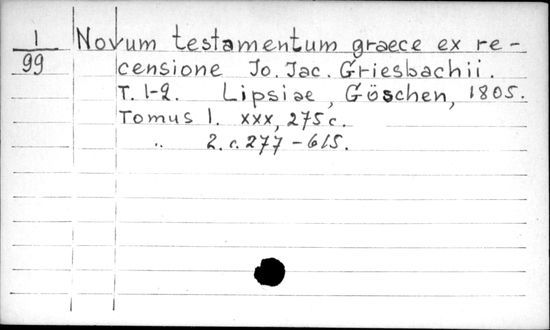 1 Novum testamentum graece ex re-
99 censione Jo. Jac. Griesbachii.
T. 1-2. Lipsiae, Göschen, 1805.
Tomus 1. xxx, 275 c.
„ 2. c. 277-615.